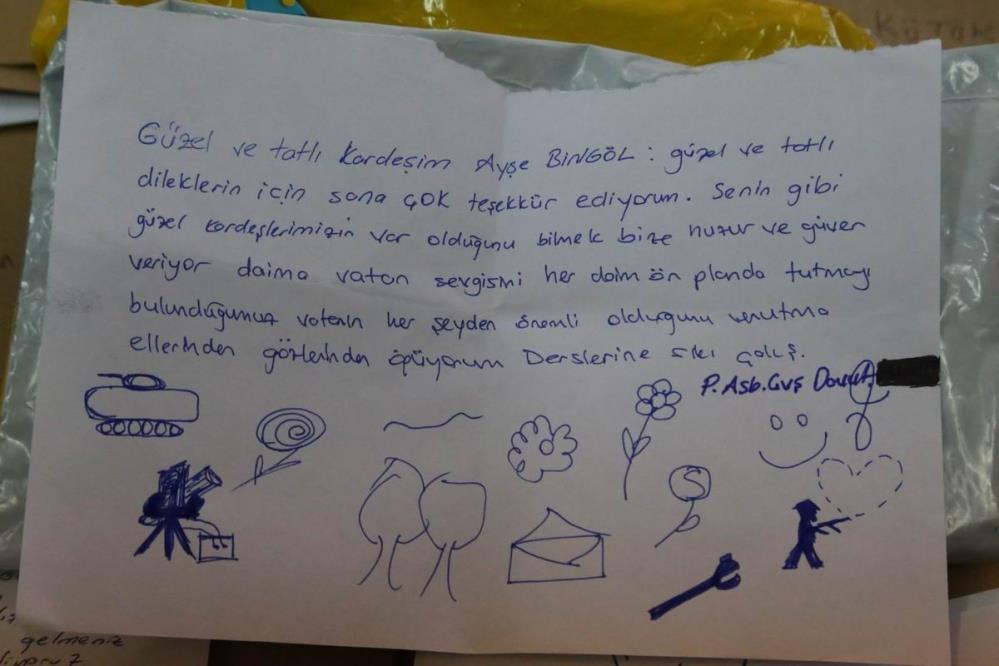 KUTAK
Güzel ve tatlı kardeşim Ayşe BİNGÖL : güzel ve tatlı
dileklerin için sana çok teşekkür ediyorum. Senin gibi
güzel kardeşlerimizin var olduğunu bilmek bize huzur ve güven
veriyor daima vatan sevgisini her daim ön planda tutmayı
bulunduğumuz vatanın her şeyden önemli olduğunu unutma
ellerinden gözlerinden öpüyorum Derslerine sıkı çalış.
P. Asb. Çvş Davut
gelmeniz